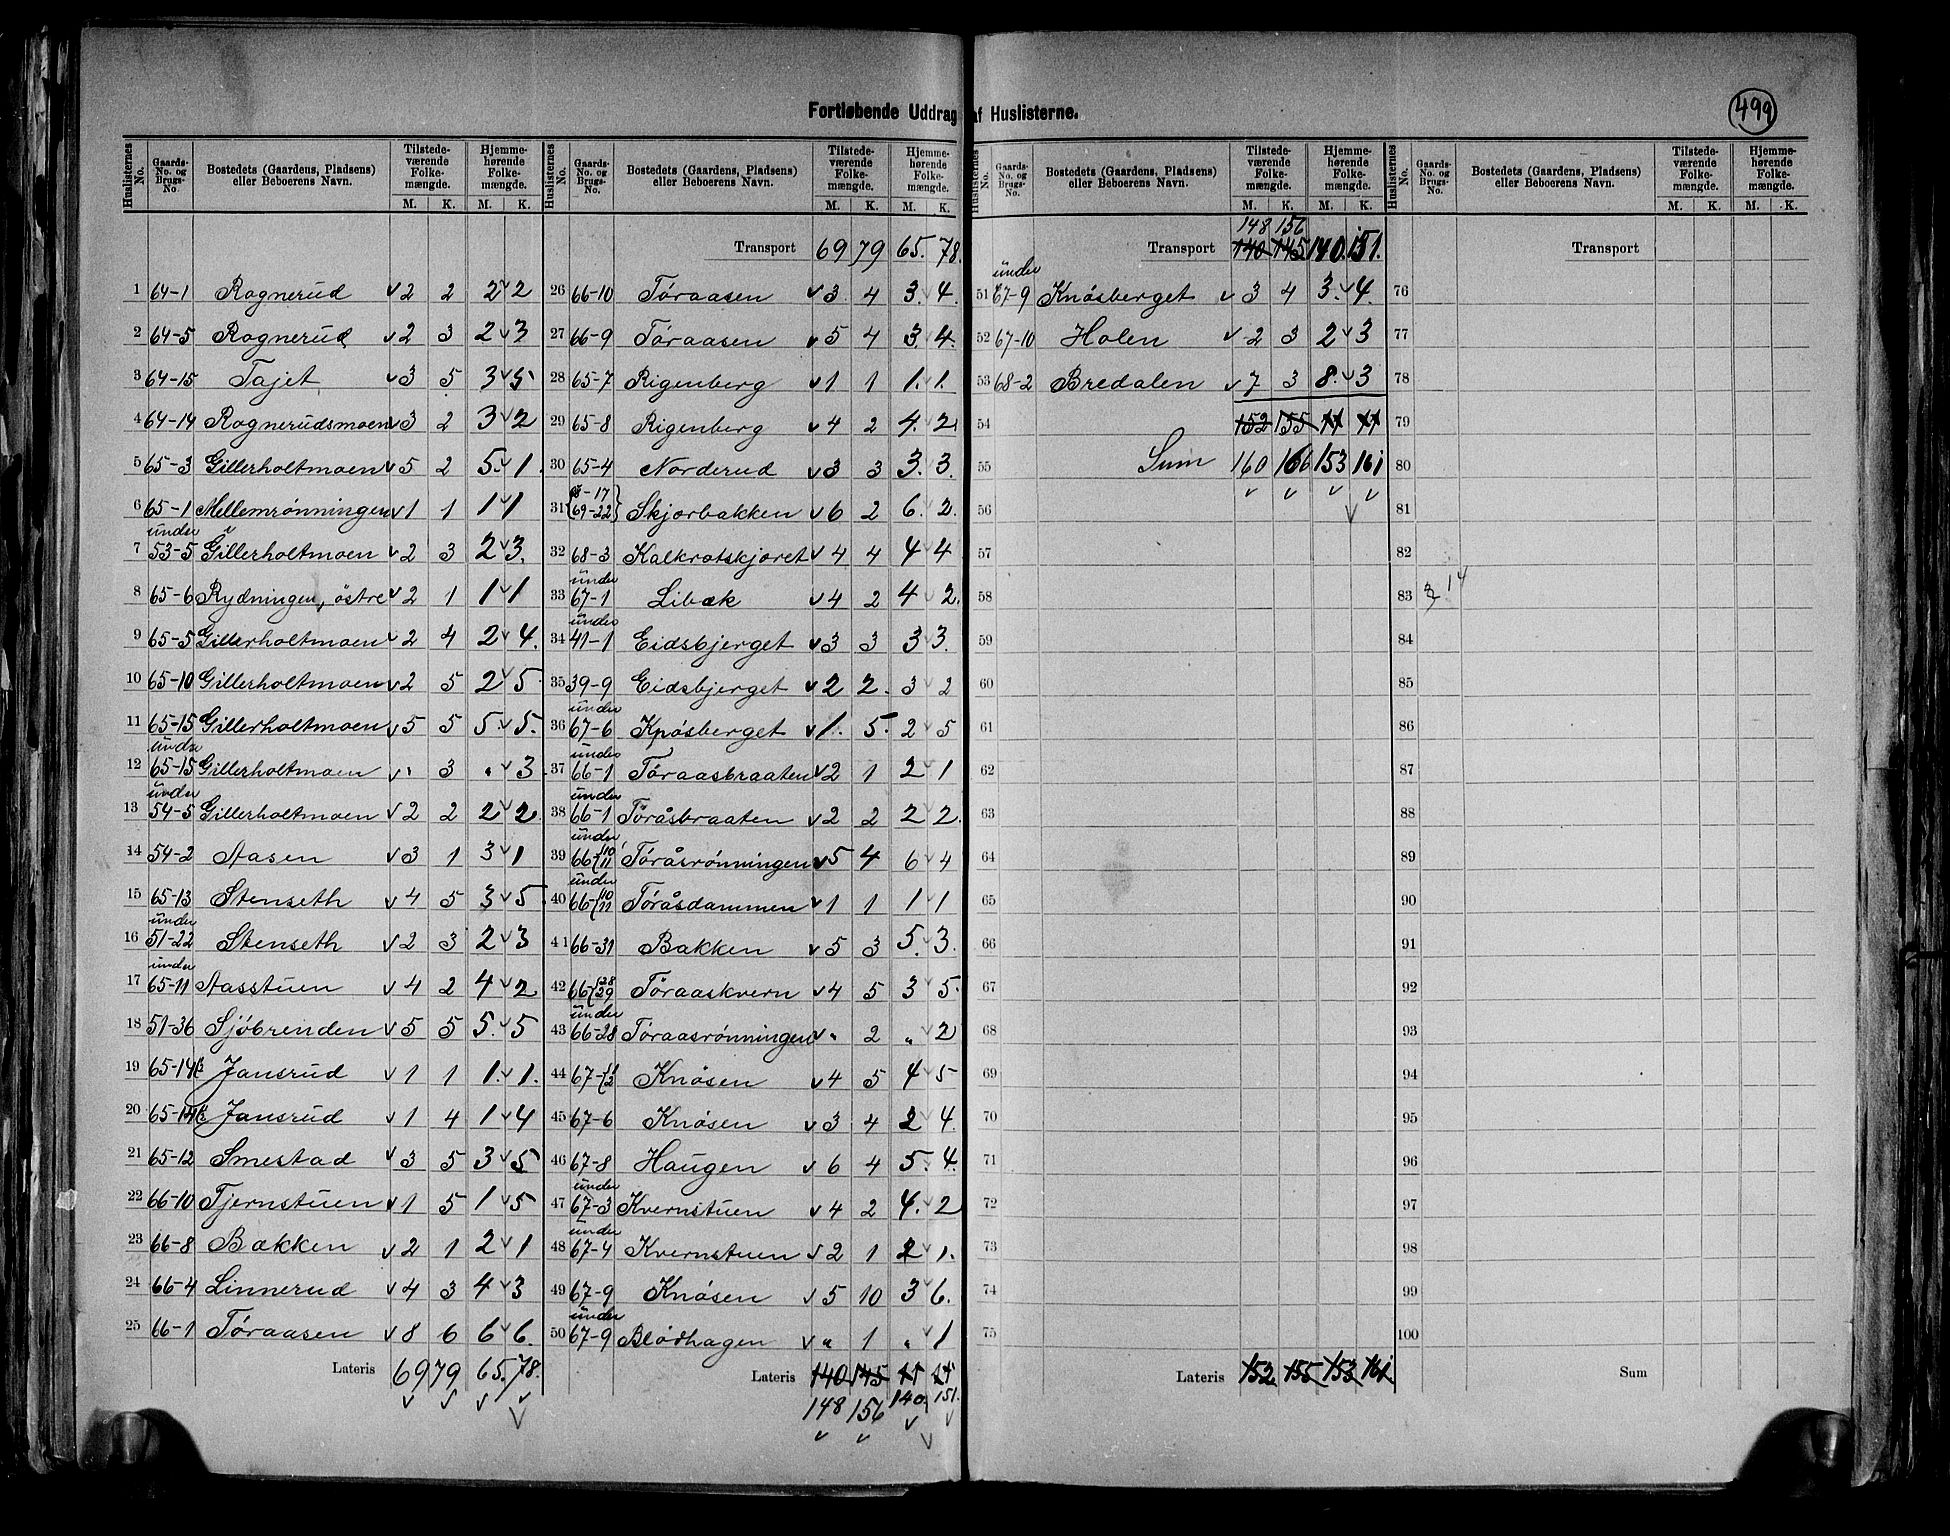 499
Fortløbende Uddrag af Huslisterne.
Huslisternes No. | Gaards-No. og Brugs-No. | Bostedets (Gaardens, Pladsens) eller Beboerens Navn. | Tilstedeværende Folkemængde. M. K. | Hjemmehørende Folkemængde. M. K.
1 64-1 Rognerud 2 2 2 2
2 64-5 Rognerud 2 3 2 3
3 64-15 Tajet 3 5 3 5
4 64-14 Rognerudsmoen 3 2 3 2
5 65-3 Gillerholtmoen 5 2 5 1
6 65-1 Mellemrønningen 1 1 1 1
7 under 53-5 Gillerholtmoen 2 3 2 3
8 65-6 Rydningen, østre 2 1 1 1
9 65-5 Gillerholtmoen 2 4 2 4
10 65-10 Gillerholtmoen 2 5 2 5
11 65-15 Gillerholtmoen 5 5 5 5
12 under 65-15 Gillerholtmoen " 3 " 3
13 under 54-5 Gillerholtmoen 2 2 2 2
14 54-2 Aasen 3 1 3 1
15 65-13 Stenseth 4 5 3 5
16 under 51-22 Stenseth 2 3 2 3
17 under 65-11 Aasstuen 4 2 4 2
18 51-36 Sjöbrenden 5 5 5 5
19 65-14 Jansrud 1 1 1 1
20 65-14 Jansrud 1 4 1 4
21 65-12 Smestad 3 5 3 5
22 66-10 Tjernstuen 1 5 1 5
23 66-8 Bakken 2 1 2 1
24 66-4 Linnerud 4 3 4 3
25 66-1 Tøraasen 8 6 6 6
Lateris 69 79 65 78
Huslisternes No. | Gaards-No. og Brugs-No. | Bostedets (Gaardens, Pladsens) eller Beboerens Navn. | Tilstedeværende Folkemængde. M. K. | Hjemmehørende Folkemængde. M. K.
Transport 69 79 65. 78.
26 66-10 Tøraasen 3 4 3 4
27 66-9 Tøraasen 5 4 3 4
28 65-7 Rigenberg 1 1 1 1
29 65-8 Rigenberg 4 2 4 2
30 65-4 Norderud 3 3 3 3
31 69-22 Skjorbakken 6 2 6 2
32 68-3 Kalkrotskjøret 4 4 4 4
33 under 67-1 Libæk 4 2 4 2
34 under 41-1 Eidsbjerget 3 3 3 3
35 39-9 Eidsbjerget 2 2 3 2
36 under 67-6 Knøsberget 1 5 2 5
37 under 66-1 Tøraasbraaten 2 1 2 1
38 under 66-1 Tøråsbraaten 2 2 2 2
39 under 66-{10 11 Tøråsrønningen 5 4 6 4
40 under 66-{10 11 Tøråsdammen 1 1 1 1
41 66-31 Bakken 5 3 5 3
42 66-{28 29 Tøraaskvern 4 5 3 5
43 under 66-28 Tøraasrønningen " 2 " 2
44 67-{1 2 Knøsen 4 5 4 5
45 67-6 Knøsen 3 4 2 4
46 67-8 Haugen 6 4 5 4
47 under 67-3 Kvernstuen 4 2 4 2
48 under 67-4 Kvernstuen 2 1 2 1
49 67-9 Knøsen 5 10 3 6
50 under 67-9 Blødhagen " 1 " 1
Lateris 140 145
148 156 140 151
Huslisternes No. | Gaards-No. og Brugs-No. | Bostedets (Gaardens, Pladsens) eller Beboerens Navn. | Tilstedeværende Folkemængde. M. K. | Hjemmehørende Folkemængde. M. K.
148 156
Transport 140 145 140 151.
51 under 67-9 Knøsberget 3 4 3 4
52 67-10 Holen 2 3 2 3
53 68-2 Bredalen 7 3 8 3
54 152 155
55 Sum 160 166 153 161
56
57
58
59
60
61
62
63
64
65
66
67
68
69
70
71
72
73
74
75
Lateris 152 155 153 161
Huslisternes No. | Gaards-No. og Brugs-No. | Bostedets (Gaardens, Pladsens) eller Beboerens Navn. | Tilstedeværende Folkemængde. M. K. | Hjemmehørende Folkemængde. M. K.
Transport
76
77
78
79
80
81
82
83 14
84
85
86
87
88
89
90
91
92
93
94
95
96
97
98
99
100
Sum